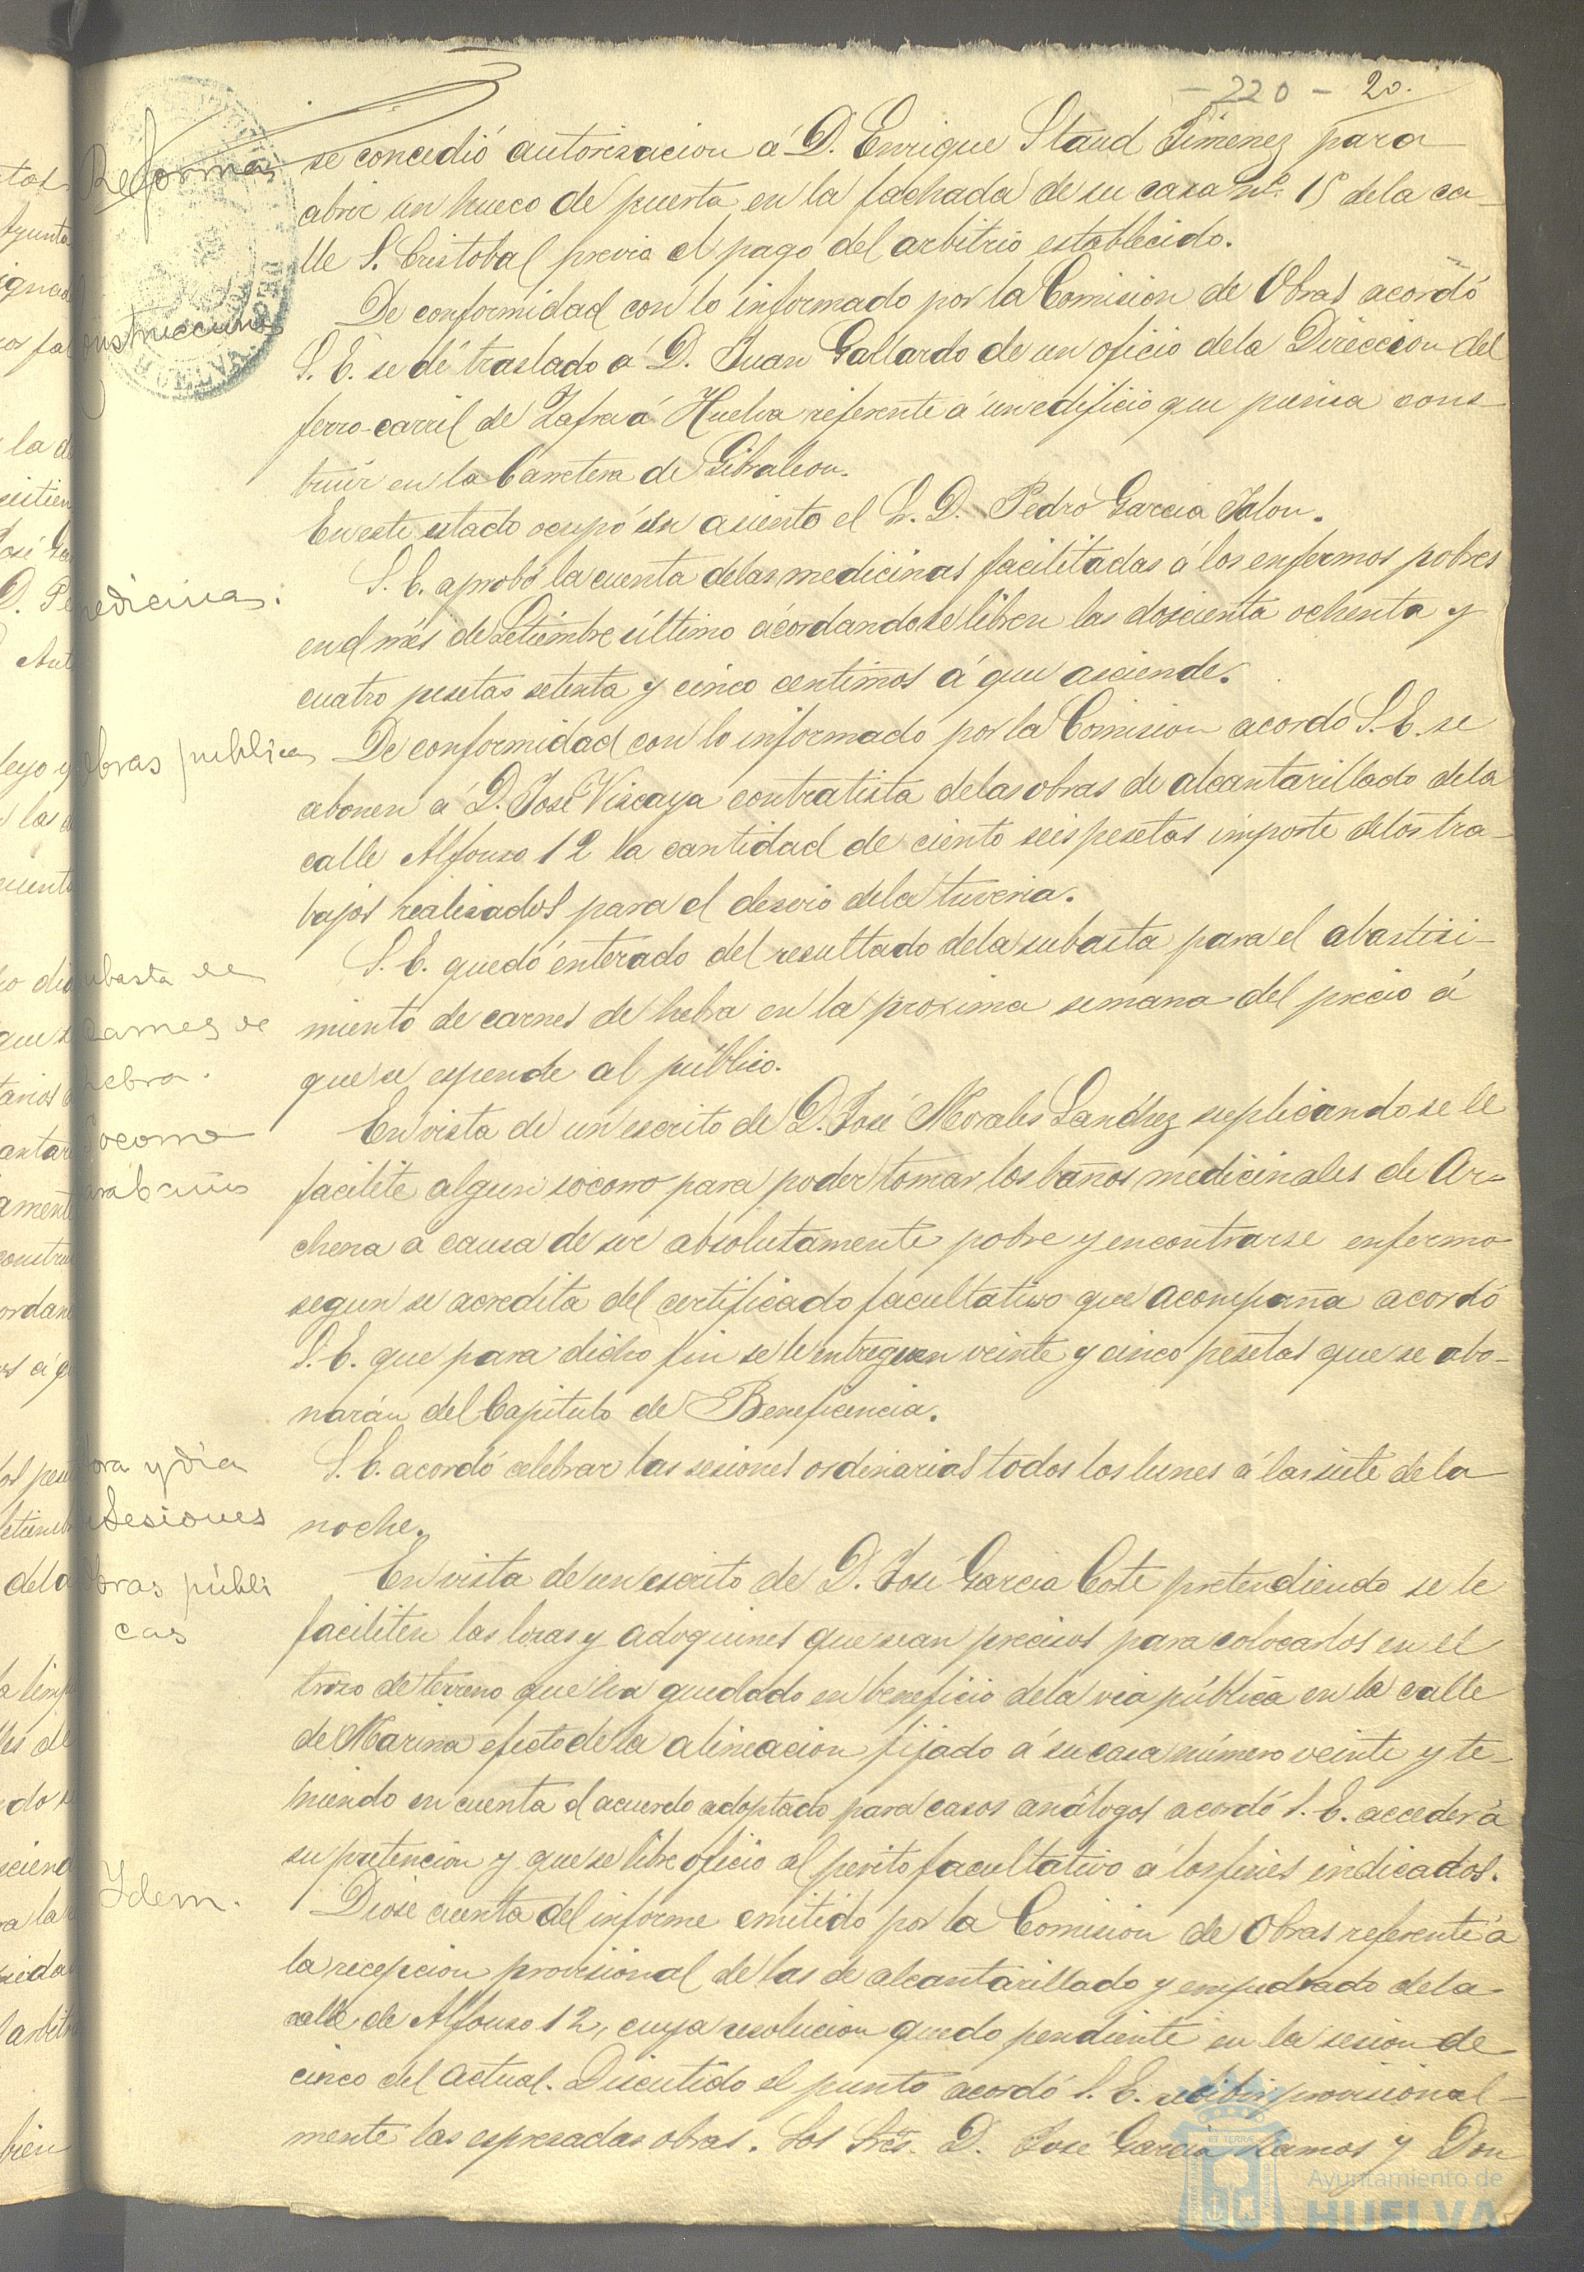 - 220 - 20.
Reformas
se concedió autorisacion á D. Enrique Staud Jimenez para
abrir un hueco de puerta en la fachada de su casa nº. 15 de la ca-
lle S. Cristobal previo el pago del arbitrio establecido.
onstrucciones
De conformidad con lo informado por la Comision de Obras acordó
S. E. se dé traslado á D. Juan Gallardo de un oficio de la Direccion del
ferro-carril de Zafra á Huelva referente á un edificio que piensa cons-
truir en la Carretera de Gibraleon.
En este estado ocupó un asiento el S. D. Pedro Garcia Jalon.
edicinas.
S. E. aprobó la cuenta de las medicinas facilitadas á los enfermos pobres
en el mes de Setiembre último acordando se libren las doscienta ochenta y
cuatro pesetas setenta y cinco centimos á que asciende.
obras publicas
De conformidad con lo informado por la Comision acordó S. E. se
abonen á D. José Viscaya contratista de las obras de alcantarillado de la
calle Alfonso 12 la cantidad de ciento seis pesetas importe de los tra-
bajos realisados para el desvio de la tuveria.
ubasta de
carnes de
hebra.
S. E. quedó enterado del resultado de la subasta para el abastisi-
miento de carnes de hebra en la proxima semana del precio á
que se espende al público.
Socorro
para baños
En vista de un escrito de D. José Morales Sanchez suplicando se le
facilite algun socorro para poder tomar los baños medicinales de Ar-
chena á causa de ser absolutamente pobre y encontrarse enfermo
segun se acredita del certificado facultativo que acompaña acordó
S. E. que para dicho fin se le entreguen veinte y cinco pesetas que se abo-
narán del Capitulo de Beneficencia.
ora y dia
Sesiones
S. E. acordó celebrar las sesiones ordinarias todos los lunes á las siete de la
noche.
Obras públi
cas
En vista de un escrito de D. José Garcia Cote pretendiendo se le
faciliten las losas y adoquines que sean precisos para colocarlos en el
troso de terreno que ha quedado en beneficio de la via pública en la calle
de Marina efecto de la alineacion fijado á su casa número veinte y te-
niendo en cuenta el acuerdo adoptado para casos análogos acordó S. E. acceder á
su pretencion y que se libre oficio al perito facultativo á los fines indicados.
Ydem.
Diose cuenta del informe emitido por la Comision de Obras referente á
la recepcion provisional de las de alcantarillado y empedrado de la
calle de Alfonso 12, cuya resolucion quedo pendiente en la sesion de
cinco del actual. Discutido el punto acordó S. E. recibir provisional-
mente las espresadas obras. Los Sres. D. José Garcia Ramos y Don
Ayuntamiento de
HUELVA